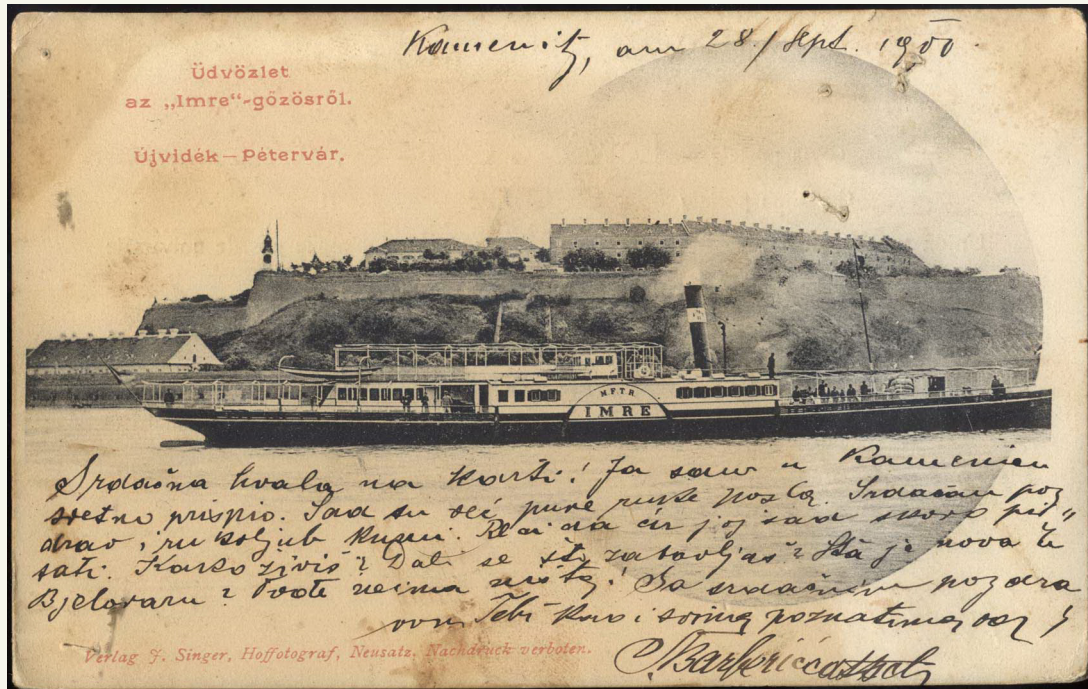 Kamenitz, am 28./Sept. 1900
Üdvözlet
az „Imre“-gőzösről.
Újvidék – Pétervár.
MFTR
IMRE
Srdačna hvala na karti! Ja sam u Kamenicu
sretno prispio. Sad su već pune ruke posla. Srdačan poz
drav i rukoljub kumi. Reci da ću joj sad skoro pi„
sati. Kako živiš? Dali se što zabavljaš? Šta je nova u
Bjelovaru? Sa srdačnim pozdra
vom Tebi kao i svima poznatima
Verlag J. Singer, Hoffotograf, Neusatz. Nachdruck verboten.